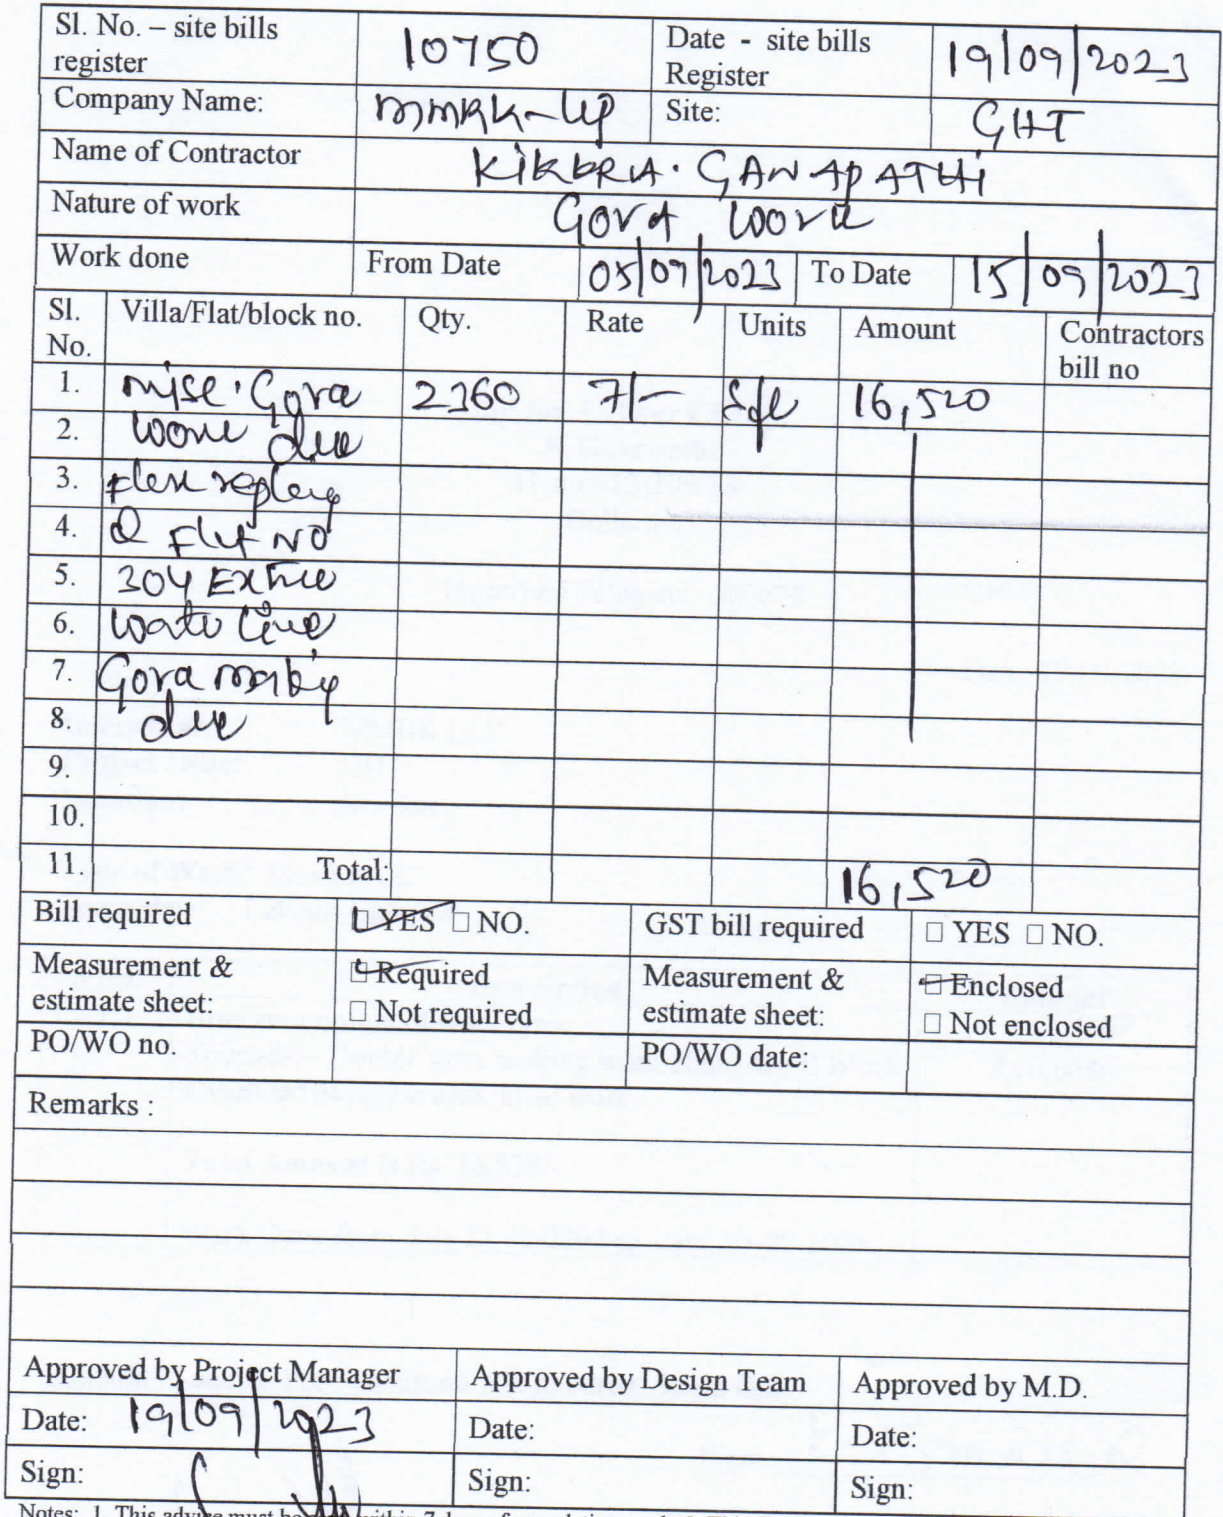 Sl. No. – site bills register 10750 Date - site bills Register 19/09/2023
Company Name: mmRK-llp Site: GHT
Name of Contractor KIKBRIA. GANAPATHi
Nature of work Gova work
Work done From Date 05/09/2023 To Date 15/09/2023
Sl. No. Villa/Flat/block no. Qty. Rate Units Amount Contractors bill no
1. misc. Gova 2360 7/- Sft 16,520
2. work
3.
4. Flat NO
5. 304
6. water line
7. Gova
8.
9.
10.
11. Total: 16,520
Bill required □ YES □ NO. GST bill required □ YES □ NO.
Measurement & estimate sheet: □ Required □ Not required Measurement & estimate sheet: □ Enclosed □ Not enclosed
PO/WO no. PO/WO date:
Remarks :
Approved by Project Manager Approved by Design Team Approved by M.D.
Date: 19/09/2023 Date: Date:
Sign: Sign: Sign:
Notes: 1. This advice must be within 7 days of